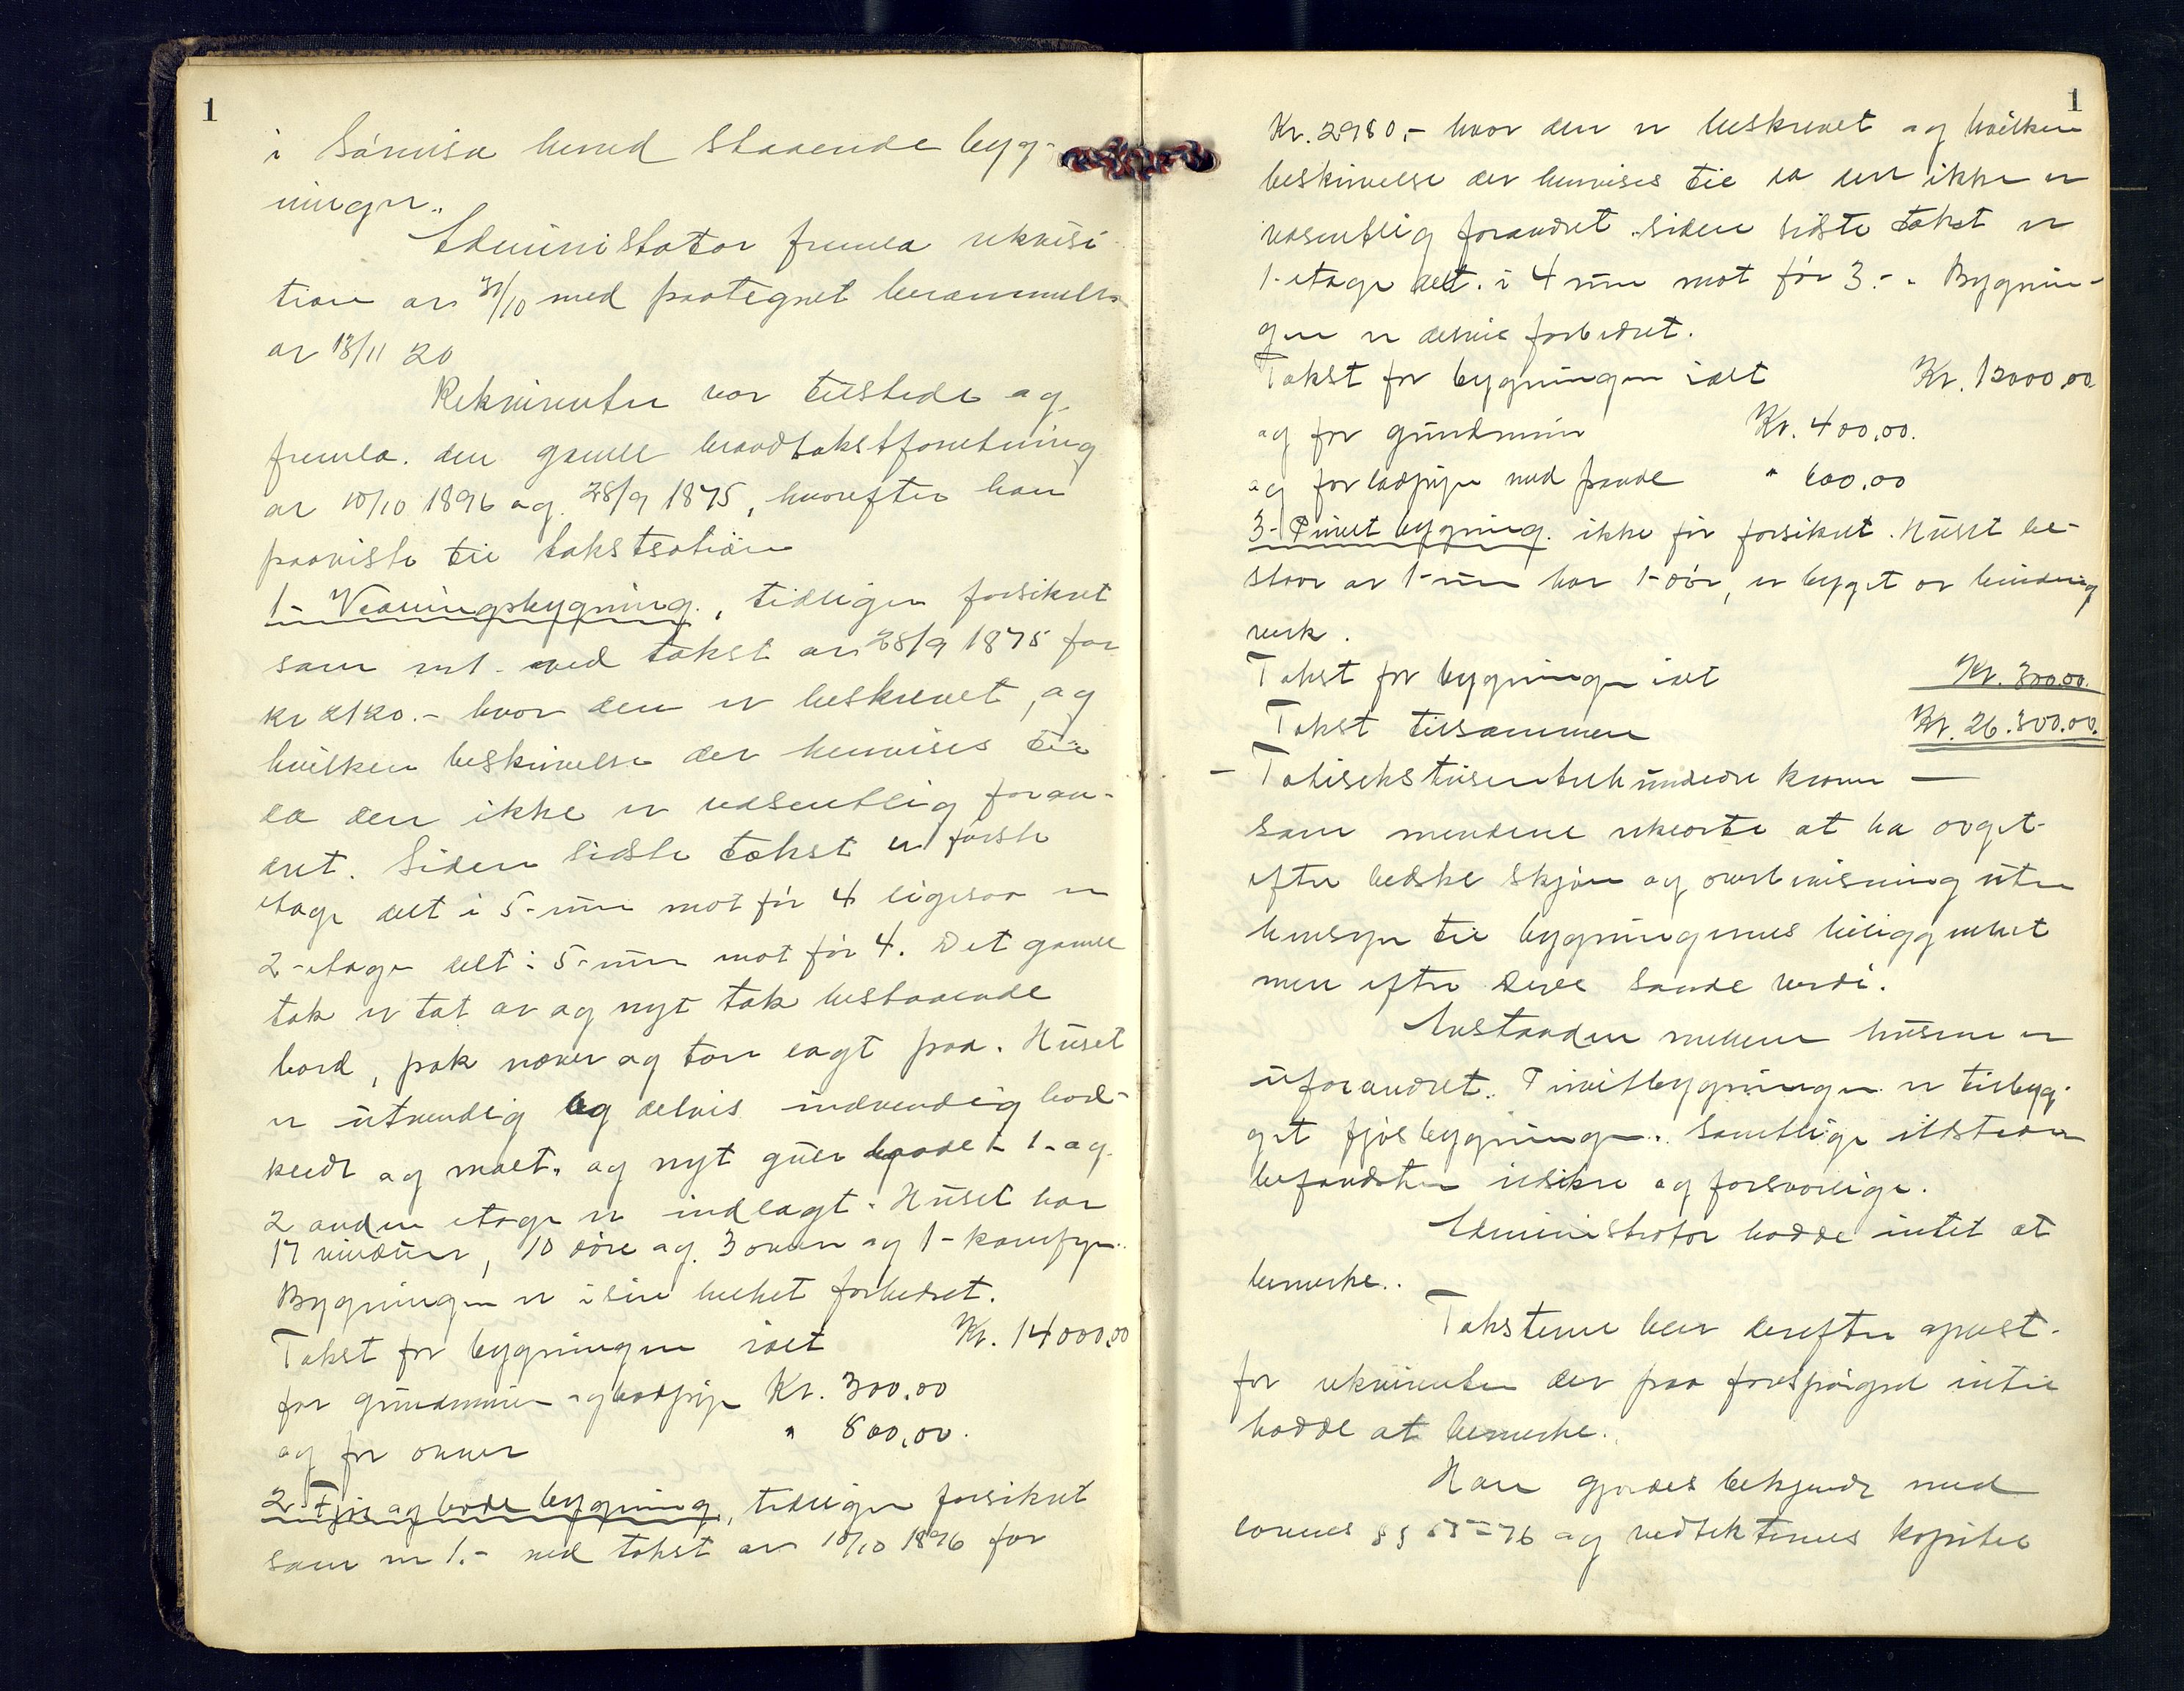 1
i Sörvisa herred staaende byg-
ninger.
Administrator fremla rekvisi-
tion av 31/10 med paategnet berammelse
av 13/11 20
Rekvirenten var tilstede og
fremla den gamle brandtakstforretning
av 10/10 1896 og 28/9 1875, hvorefter han
paaviste til takstsation
1- Vaaningsbygning, tidligere forsikret
som nr 1 ved takst av 28/9 1875 for
kr 2120.- hvor den er beskrevet, og
hvilken beskrivelse der henvises til
da den ikke er væsentlig foran-
dret. Siden sidste takst er förste
etage delt i 5-rum mot för 4 ligesaa er
2-etage delt i 5-rum mot för 4. Det gamle
tak er tat av og nyt tak bestaaende
bord, pak næver og torv lagt paa. Huset
er utvendig og delvis indvendig bord-
klædt og malt. og nyt gulv baade i 1- og
2 anden etage er indlagt. Huset har
17 vinduer, 10 döre og 3 ovner og 1-komfyr.
Bygningen er i sin helhet forbedret.
Takst for bygningen ialt Kr. 14000,00
for grundmuren og brandpipe Kr. 300,00
og for ovner " 800,00.
2- Fjös og bode bygning, tidligere forsikret
som nr 1.- ved takst av 10/10 1896 for
1
Kr. 2980,- hvor den er beskrevet og hvilken
beskrivelse der henvises til da den ikke er
væsentlig forandret. siden sidste takst er
1-etage delt i 4 rum mot för 3.-. Bygnin-
gen er delvis forbedret.
Takst for bygningen ialt Kr. 12000,00
og for grundmur Kr. 400,00.
og for brandpipe med pande " 600,00
3- Privet bygning. ikke för forsikret. Huset be-
staar av 1-rum har 1-dör, er bygget av bindings
verk.
Takst for bygningen ialt Kr. 300,00.
Takst tilsammen Kr. 26.300.00.
- Totisekstusentrehundrede kroner -
som mændene erklærte at ha avgit
efter bedste skjön og overbevisning uten
hensyn til bygningenes beliggenhet
men efter deres sande værdi.
Avstanden mellem husene er
uforandret. Privetbygningen er tilbyg-
get fjösbygningen. Samtlige ildsteder
befandtes ildsikre og forsvarlige.
Administrator hadde intet at
bemerke.
Taksterne blev derefter oplæst
for rekvirenten der paa forespörgsel intet
hadde at bemerke.
Han gjordes bekjendt med
lovens §§ 75-76 og vedtekternes kapitel